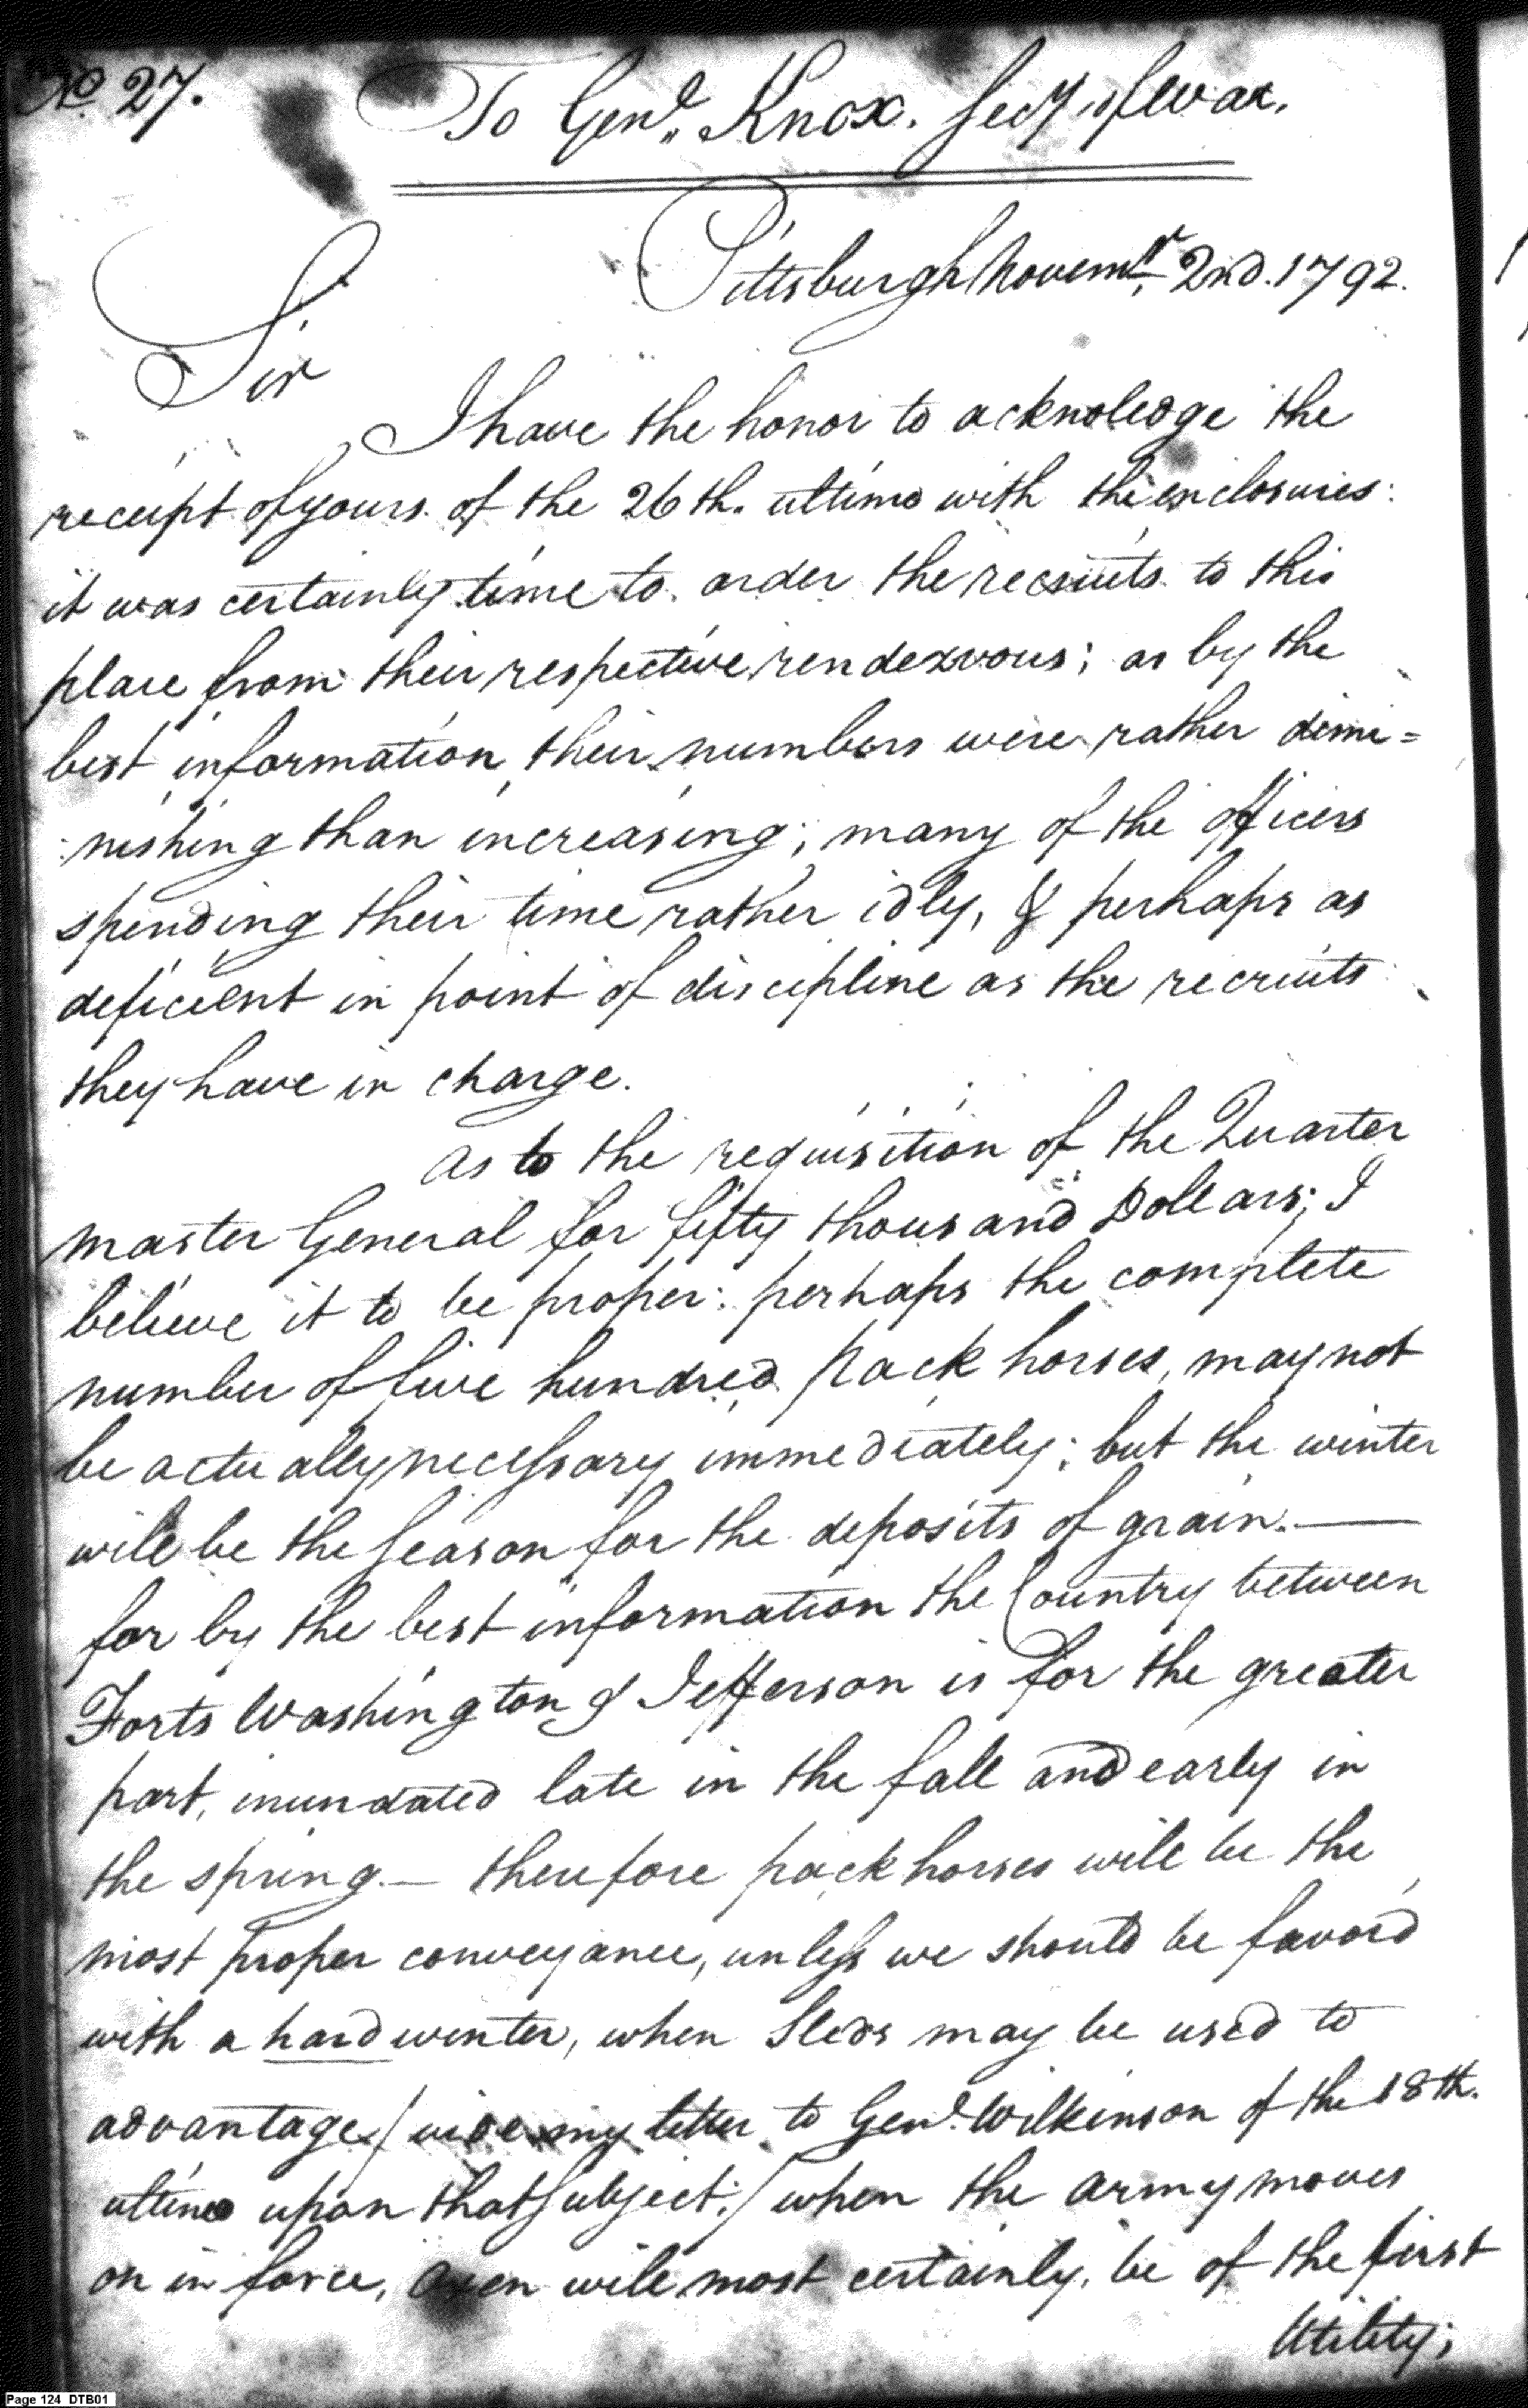 No 27.
To Genl. Knox. Secy. of War.
Pittsburgh Novemr. 2nd. 1792.
Sir
I have the honor to acknoledge the
receipt of yours of the 26th. ultimo with the enclosures:
it was certainly time to order the recruits to this
place from their respective rendezvous; as by the
best information their numbers were rather dimi=
:nishing than increasing; many of the officers
spending their time rather idly, & perhaps as
deficient in point of discipline as the recruits
they have in charge.
as to the requisition of the Quarter
master General for fifty thousand Dollars; I
believe it to be proper: perhaps the complete
number of five hundred pack horses, may not
be actually necessary immediately; but the winter
will be the season for the deposits of grain.—
for by the best information the Country between
Forts Washington & Jefferson is for the greater
part, inundated late in the fall and early in
the spring.— therefore pack horses will be the
most proper conveyance, unless we should be favord
with a hard winter, when Sleds may be used to
advantage/ vide my letter to Genl. Wilkinson of the 18th.
ultimo upon that subject:/ when the army moves
on in force, Oxen will most certainly be of the first
Utility;
Page 124 DTB01